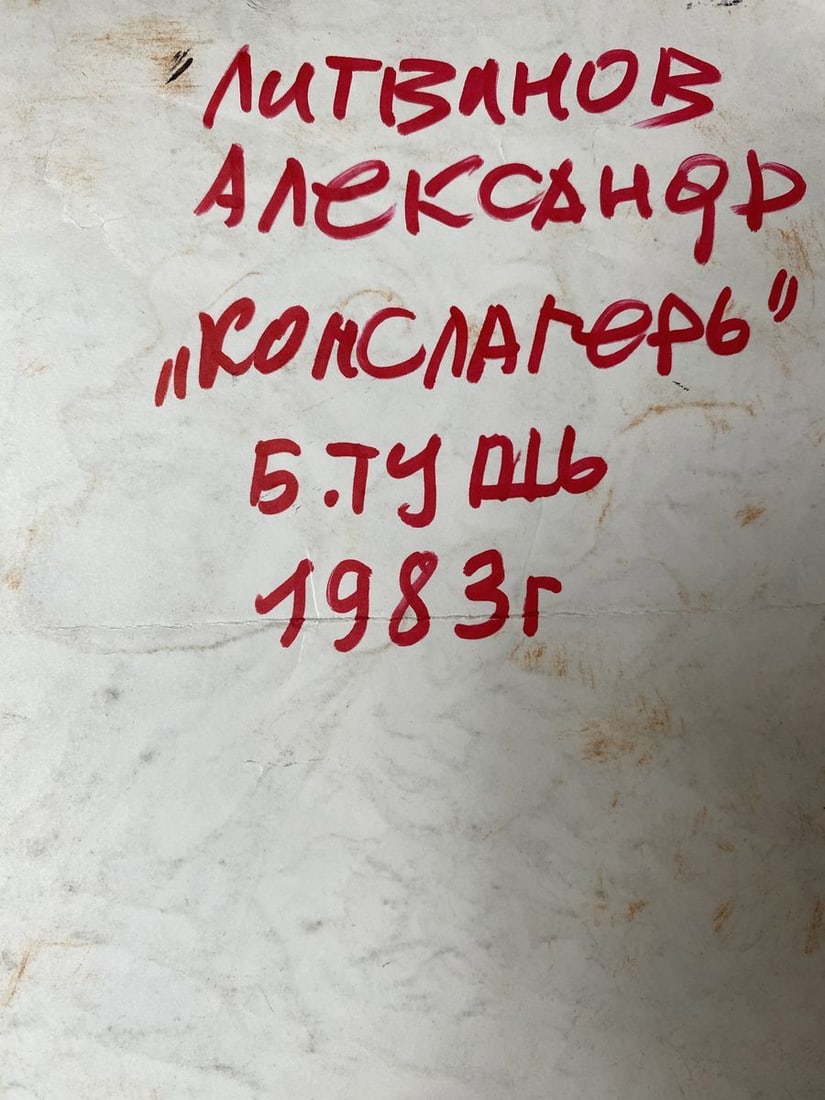 Литвинов
Александр
„Концлагерь"
Б. Тушь
1983г